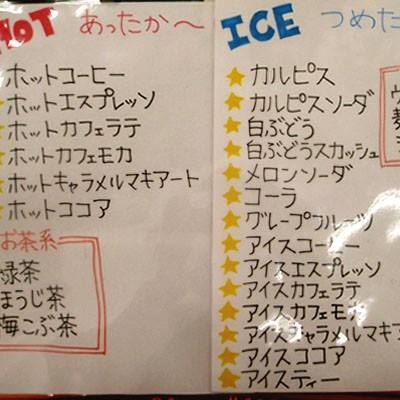 HOT あったか〜
ホットコーヒー
ホットエスプレッソ
ホットカフェラテ
ホットカフェモカ
ホットキャラメルマキアート
ホットココア
お茶系
緑茶
ほうじ茶
梅こぶ茶
ICE つめた
カルピス
カルピスソーダ
白ぶどう
白ぶどうスカッシュ
メロンソーダ
コーラ
グレープフルーツ
アイスコーヒー
アイスエスプレッソ
アイスカフェラテ
アイスカフェモカ
アイスキャラメルマキア
アイスココア
アイスティー